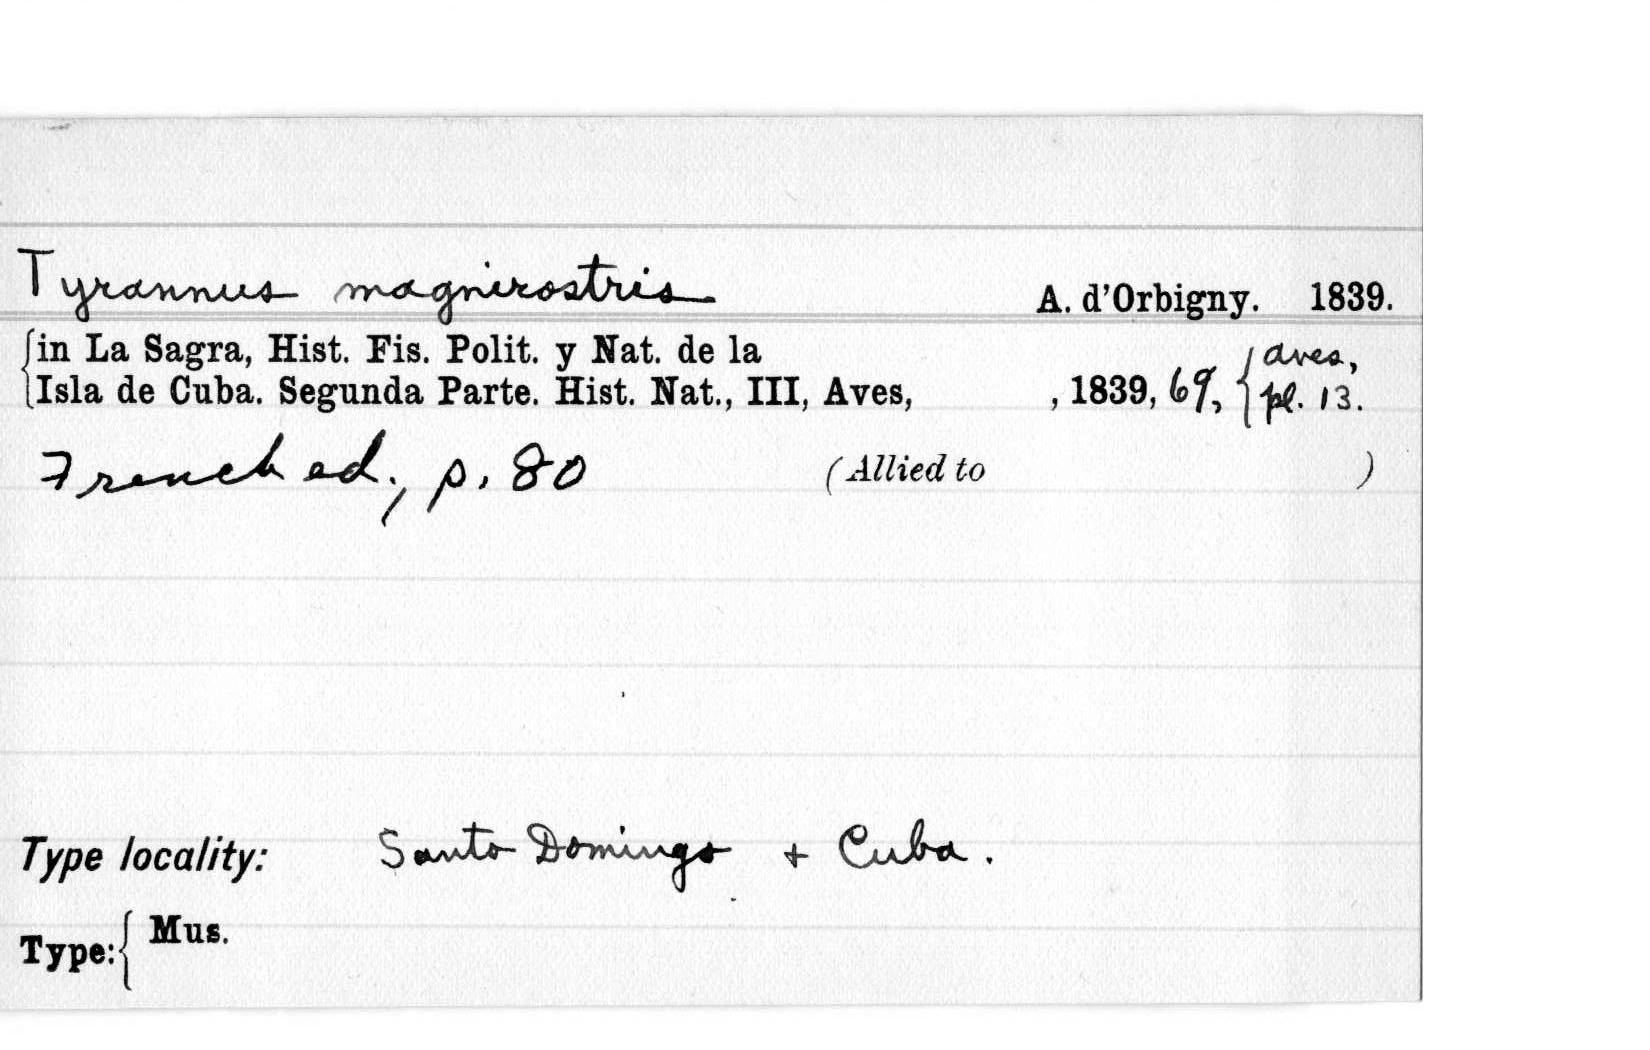 Tyrannus magnirostris A. d'Orbigny. 1839.
in La Sagra, Hist. Fis. Polit. y Nat. de la aves,
Isla de Cuba. Segunda Parte. Hist. Nat., III, Aves, , 1839, 69, pl. 13.
French ed., p. 80 (Allied to )
Type locality: Santo Domingo + Cuba.
Type: Mus.